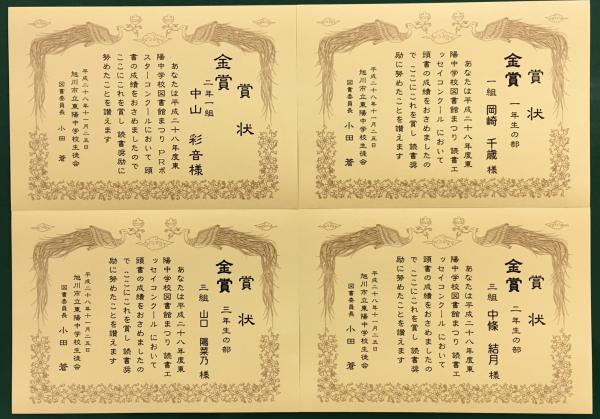 賞状
金賞
二年一組
中山 彩音様
あなたは平成二十八年度東
陽中学校図書館まつりPRポ
スターコンクールにおいて頭
書の成績をおさめましたので
ここにこれを賞し読書奨励に
努めたことを讃えます
平成二十八年十一月二五日
旭川市立東陽中学校生徒会
図書委員長 小田 蒼
賞状
金賞 一年生の部
一組 岡崎 千歳 様
あなたは平成二十八年度東
陽中学校図書館まつり読書エ
ッセイコンクールにおいて
頭書の成績をおさめましたの
でここにこれを賞し読書奨
励に努めたことを讃えます
平成二十八年十一月二五日
旭川市立東陽中学校生徒会
図書委員長 小田 蒼
賞状
金賞 三年生の部
三組 山口 陽菜乃 様
あなたは平成二十八年度東
陽中学校図書館まつり読書エ
ッセイコンクールにおいて
頭書の成績をおさめましたの
でここにこれを賞し読書奨
励に努めたことを讃えます
平成二十八年十一月二五日
旭川市立東陽中学校生徒会
図書委員長 小田 蒼
賞状
金賞 二年生の部
三組 中條 結月 様
あなたは平成二十八年度東
陽中学校図書館まつり読書エ
ッセイコンクールにおいて
頭書の成績をおさめましたの
でここにこれを賞し読書奨
励に努めたことを讃えます
平成二十八年十一月二五日
旭川市立東陽中学校生徒会
図書委員長 小田 蒼